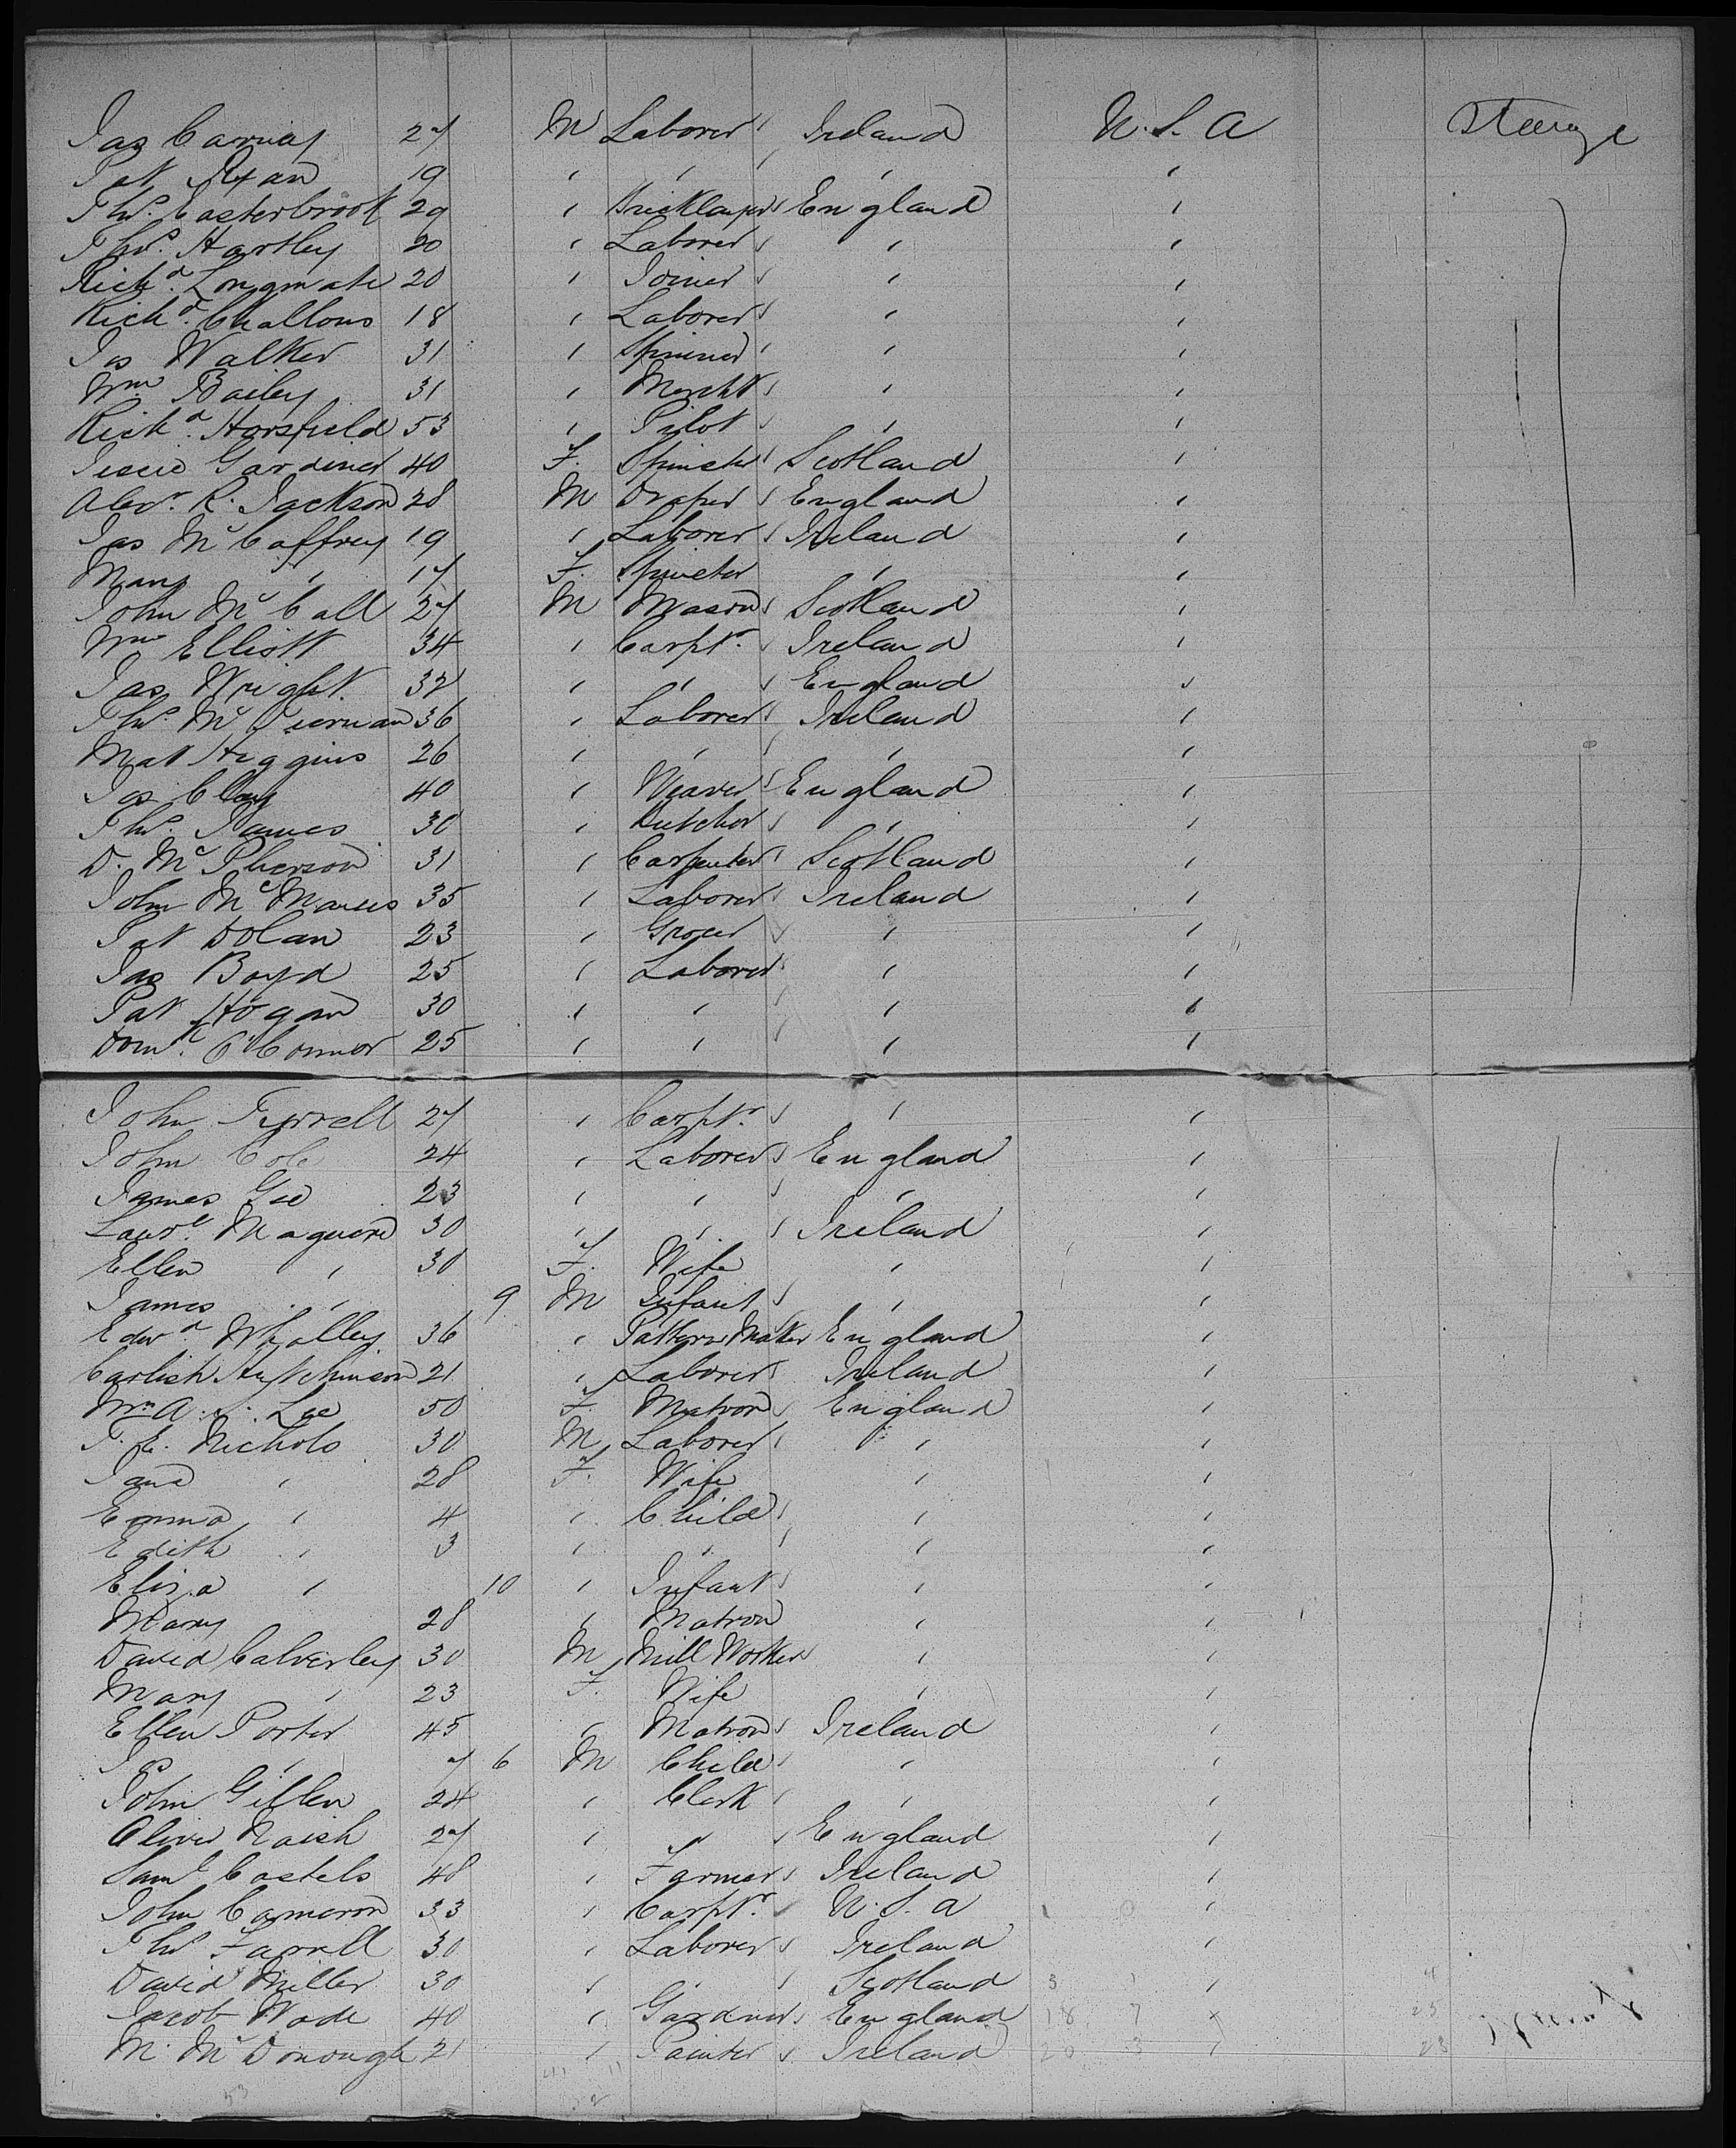 Jas Carnay 27 M Laborer Ireland U.S.A Steerage
Pat Ryan 19 " " " "
Thos. Easterbrook 29 " Bricklayer England "
Thos. Hartley 20 " Laborer " "
Richd. Longmate 20 " Joiner " "
Richd. Challons 18 " Laborer " "
Jas Walker 31 " Spinner " "
Wm Bailey 31 " Mercht " "
Richd. Horsfield 53 " Pilot " "
Jessie Gardiner 40 F. Spinster Scotland "
Alexr. R. Jackson 28 M Draper England "
Jas McCaffrey 19 " Laborer Ireland "
Mary " 17 F. Spinster " "
John McCall 27 M Mason Scotland "
Wm Elliott 34 " Carptr. Ireland "
Jas Wright 32 " " England "
Thos. McTiernan 36 " Laborer Ireland "
Mat Higgins 26 " " " "
Jas Clay 40 " Weaver England "
Thos. James 30 " Butcher " "
D. McPherson 31 " Carpenter Scotland "
John McManus 35 " Laborer Ireland "
Pat Dolan 23 " Grocer " "
Jas Boyd 25 " Laborer " "
Pat Hogan 30 " " " "
Domk. O'Connor 25 " " " "
John Tyrrell 27 " Carptr. " "
John Cole 24 " Laborer England "
James Gee 23 " " " "
Lawre. Maguire 30 " " Ireland "
Ellen " 30 F. Wife " "
James " 9 M Infant " "
Edwd. Whalley 36 " Pattern Maker England "
Hutchinson 21 " Laborer Ireland "
Lee 50 F. Matron England "
T. E. Nichols 30 M Laborer " "
Jane " 28 F. Wife " "
Emma " 4 " Child " "
Edith " 3 " " " "
Eliza " 10 " Infant " "
Mary 28 " Matron " "
David Calverley 30 M Mill Worker " "
Mary " 23 F. Wife " "
Ellen Porter 45 " Matron Ireland "
Jas " 7 6 M Child " "
John Gillen 24 " Clerk " "
Oliver Naish 27 " " England "
Saml Costelo 48 " Farmer Ireland "
John Cameron 33 " Carptr. U.S.A "
Thos Farrell 30 " Laborer Ireland "
David Miller 30 " " Scotland 3 1 " 4
Jacob Wade 40 " Gardner England 18 7 " 25
M. McDonough 21 " Painter Ireland 20 3 " 23
53